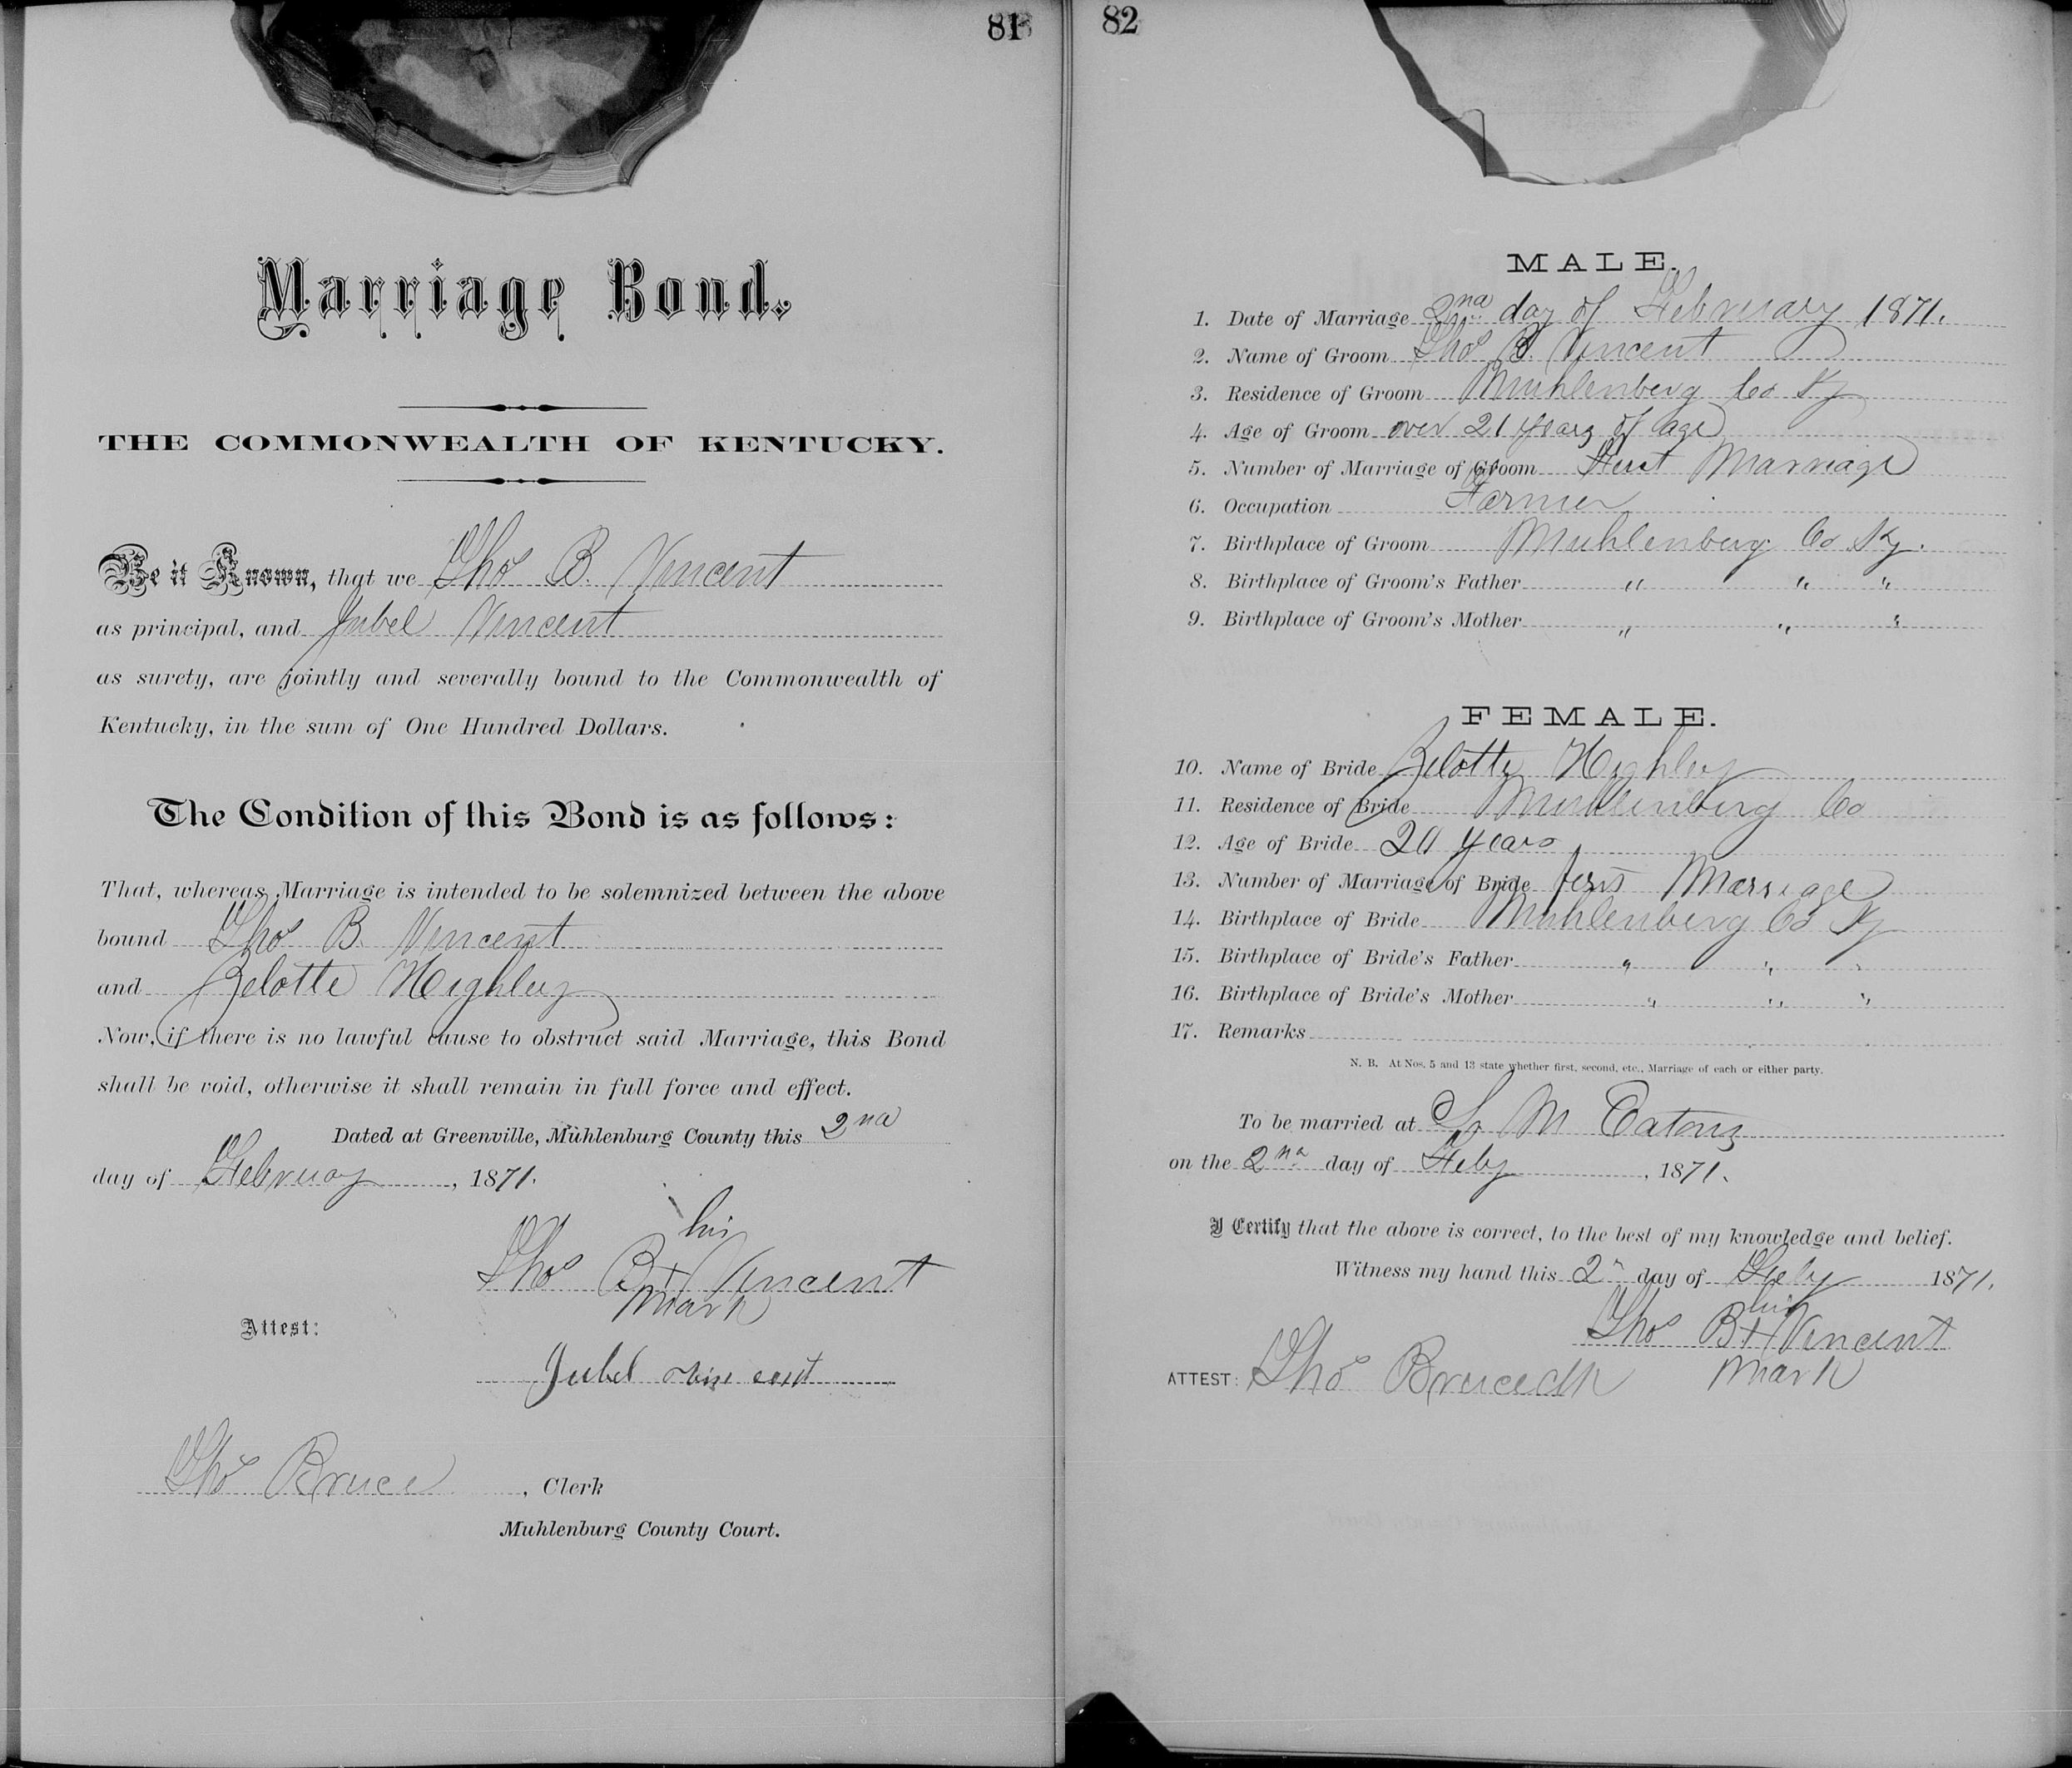 81
Marriage Bond.
THE COMMONWEALTH OF KENTUCKY.
Be it Known, that we Thos B. Vincent
as principal, and Jubel Vincent
as surety, are jointly and severally bound to the Commonwealth of
Kentucky, in the sum of One Hundred Dollars.
The Condition of this Bond is as follows:
That, whereas Marriage is intended to be solemnized between the above
bound Thos B. Vincent
and Zelotte Heighley
Now, if there is no lawful cause to obstruct said Marriage, this Bond
shall be void, otherwise it shall remain in full force and effect.
Dated at Greenville, Muhlenburg County this 2nd
day of Februay, 1871.
his
Thos B + Vincent
mark
Attest:
Jubel Vincent
Thos Bruce, Clerk
Muhlenburg County Court.
82
MALE.
1. Date of Marriage 2nd day of February 1871.
2. Name of Groom Thos B. Vincent
3. Residence of Groom Muhlenberg Co Ky
4. Age of Groom over 21 years of age
5. Number of Marriage of Groom First Marriage
6. Occupation Farmer
7. Birthplace of Groom Muhlenberg Co Ky.
8. Birthplace of Groom's Father " " "
9. Birthplace of Groom's Mother " " "
FEMALE.
10. Name of Bride Zelotte Heighley
11. Residence of Bride Muhlenberg Co
12. Age of Bride years
13. Number of Marriage of Bride first Marriage
14. Birthplace of Bride Muhlenberg Co Ky
15. Birthplace of Bride's Father " " "
16. Birthplace of Bride's Mother " " "
17. Remarks
N. B. At Nos. 5 and 13 state whether first, second, etc., Marriage of each or either party.
To be married at M Eatons
on the 2nd day of Feby, 1871.
I Certify that the above is correct, to the best of my knowledge and belief.
Witness my hand this 2n day of Feby 1871.
his
Thos B + Vincent
ATTEST: Thos Bruce clk mark